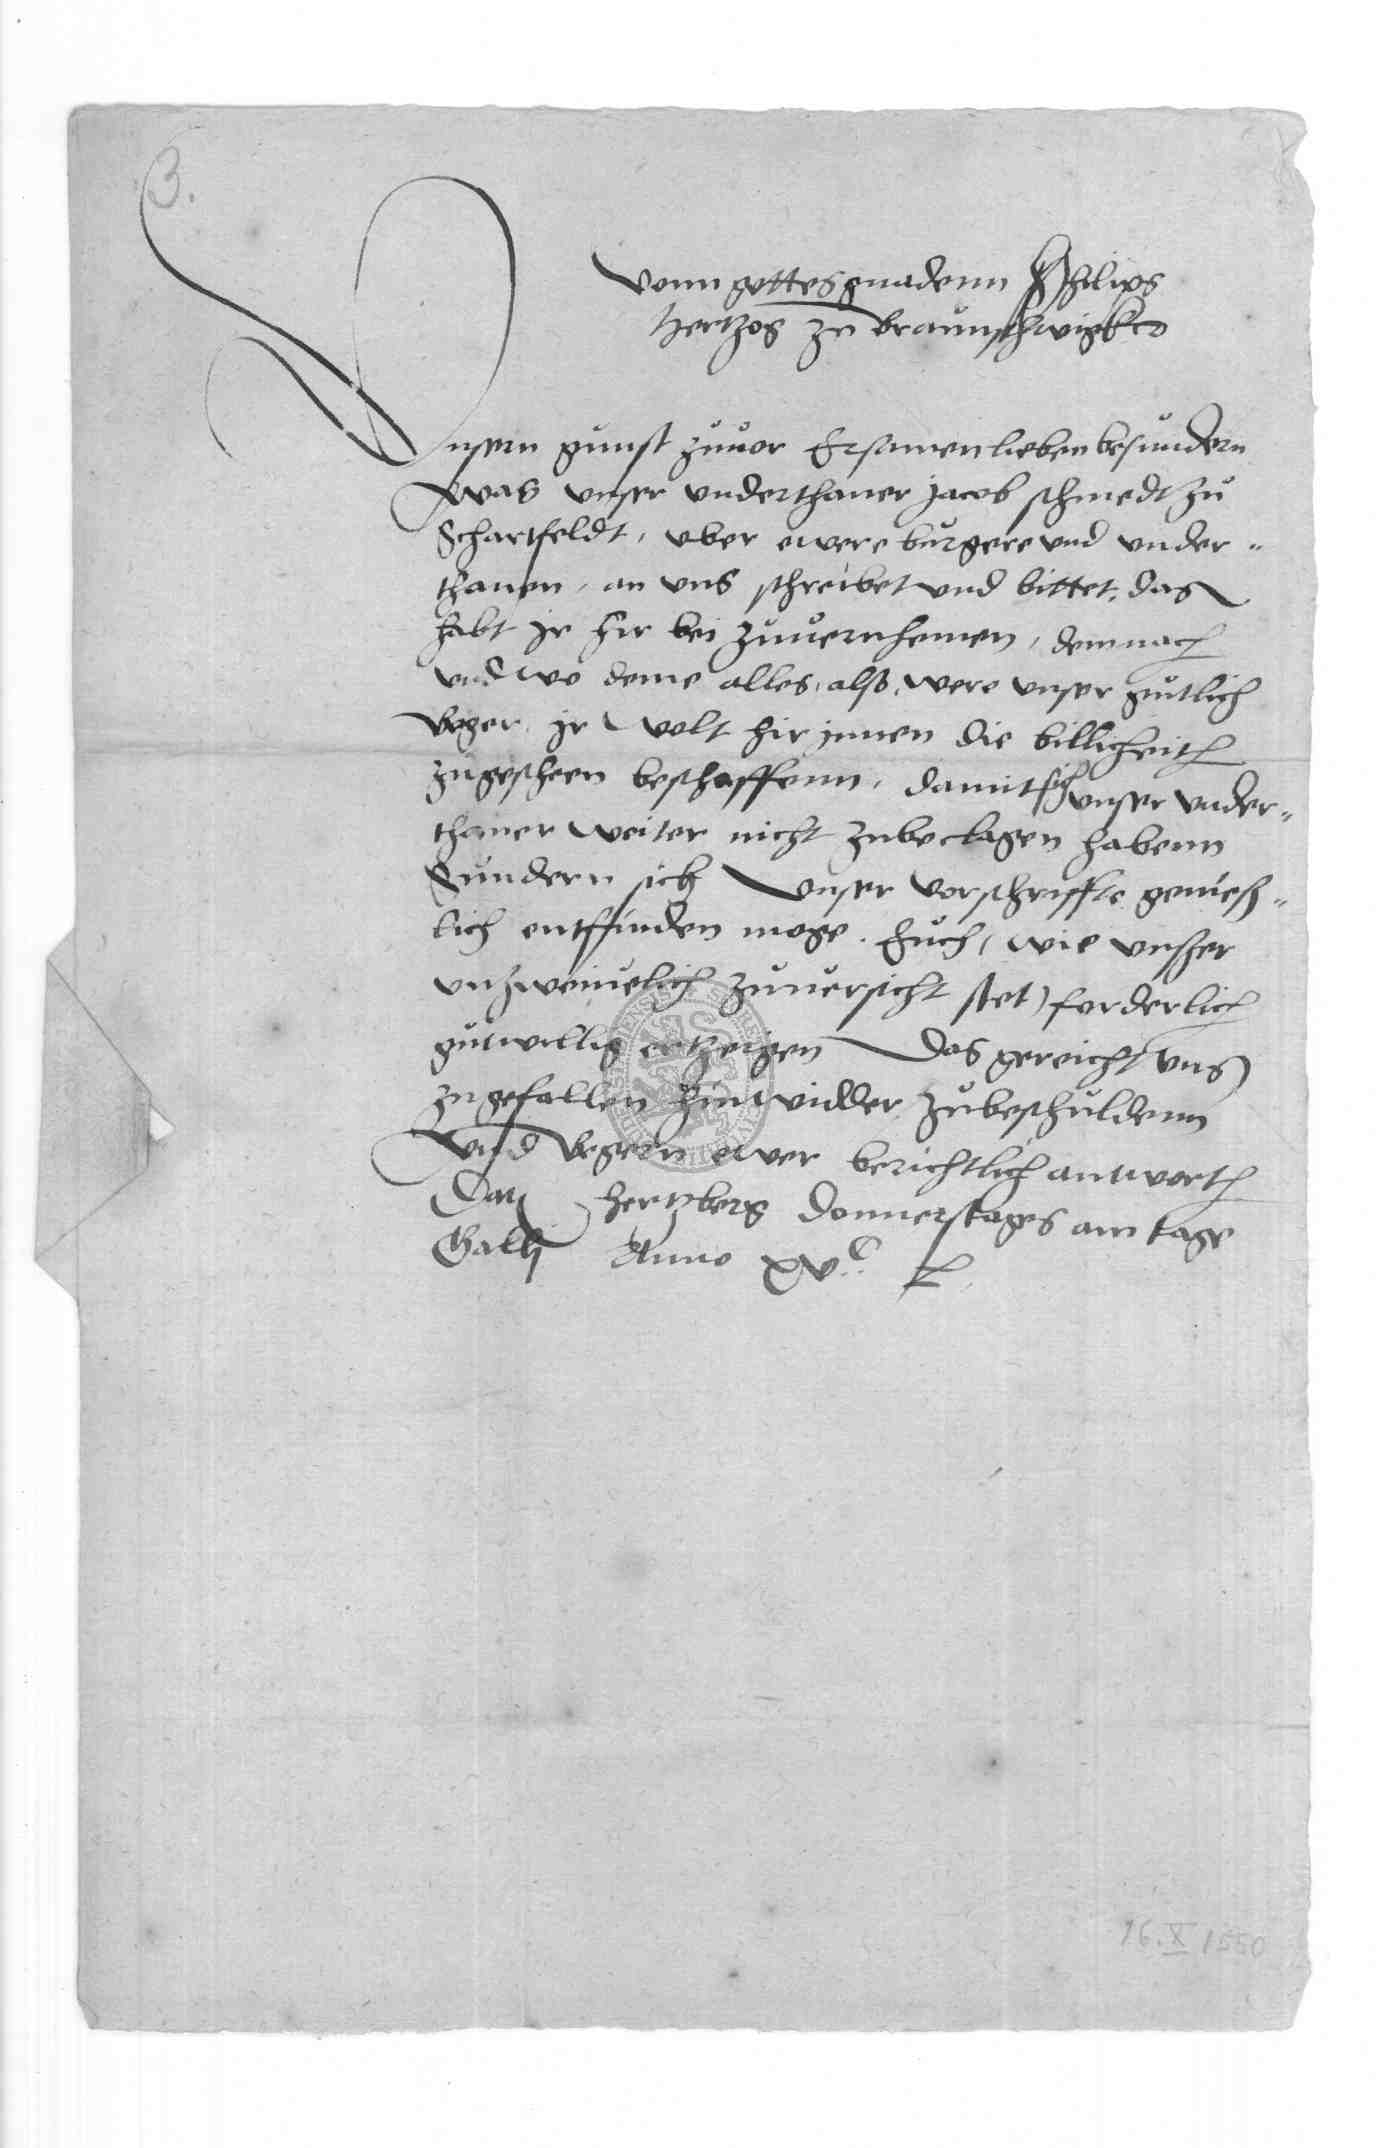 3.
Vonn gottes gnadenn Philips
Hertzog zu braunschwigk ec
Vnsern gunst zuuor Ersamen lieben besundern
Was vnser vnderthaner Jacob schmedt zu
Schartfeldt, vber ewere burgere vnd vnder-
thanen, an vns schreibet vnd bittet, das
habt jr hir bei zuuernhemen, demnach
vnd wo deme alles also, were vnser gutlich
beger, jr wolt hir jnnen die billicheit
zugescheen beschaffenn, damit sich vnser vnder-
thaner weiter nicht zubeclagen habenn
Sundern sich vnser vorschriffte genieß-
lich entfinden moge. Euch, wie vnßer
vnzweiuelich zuuersicht stet) forderlich
gutwillig ertzeigen Das gereicht vns
zugefallen hinwidder zubeschuldenn
Vnd begern ewer berichtlich antwort
Dat hertzberg Donnerstages am tage
Galli Anno xvc L
16. X 1550